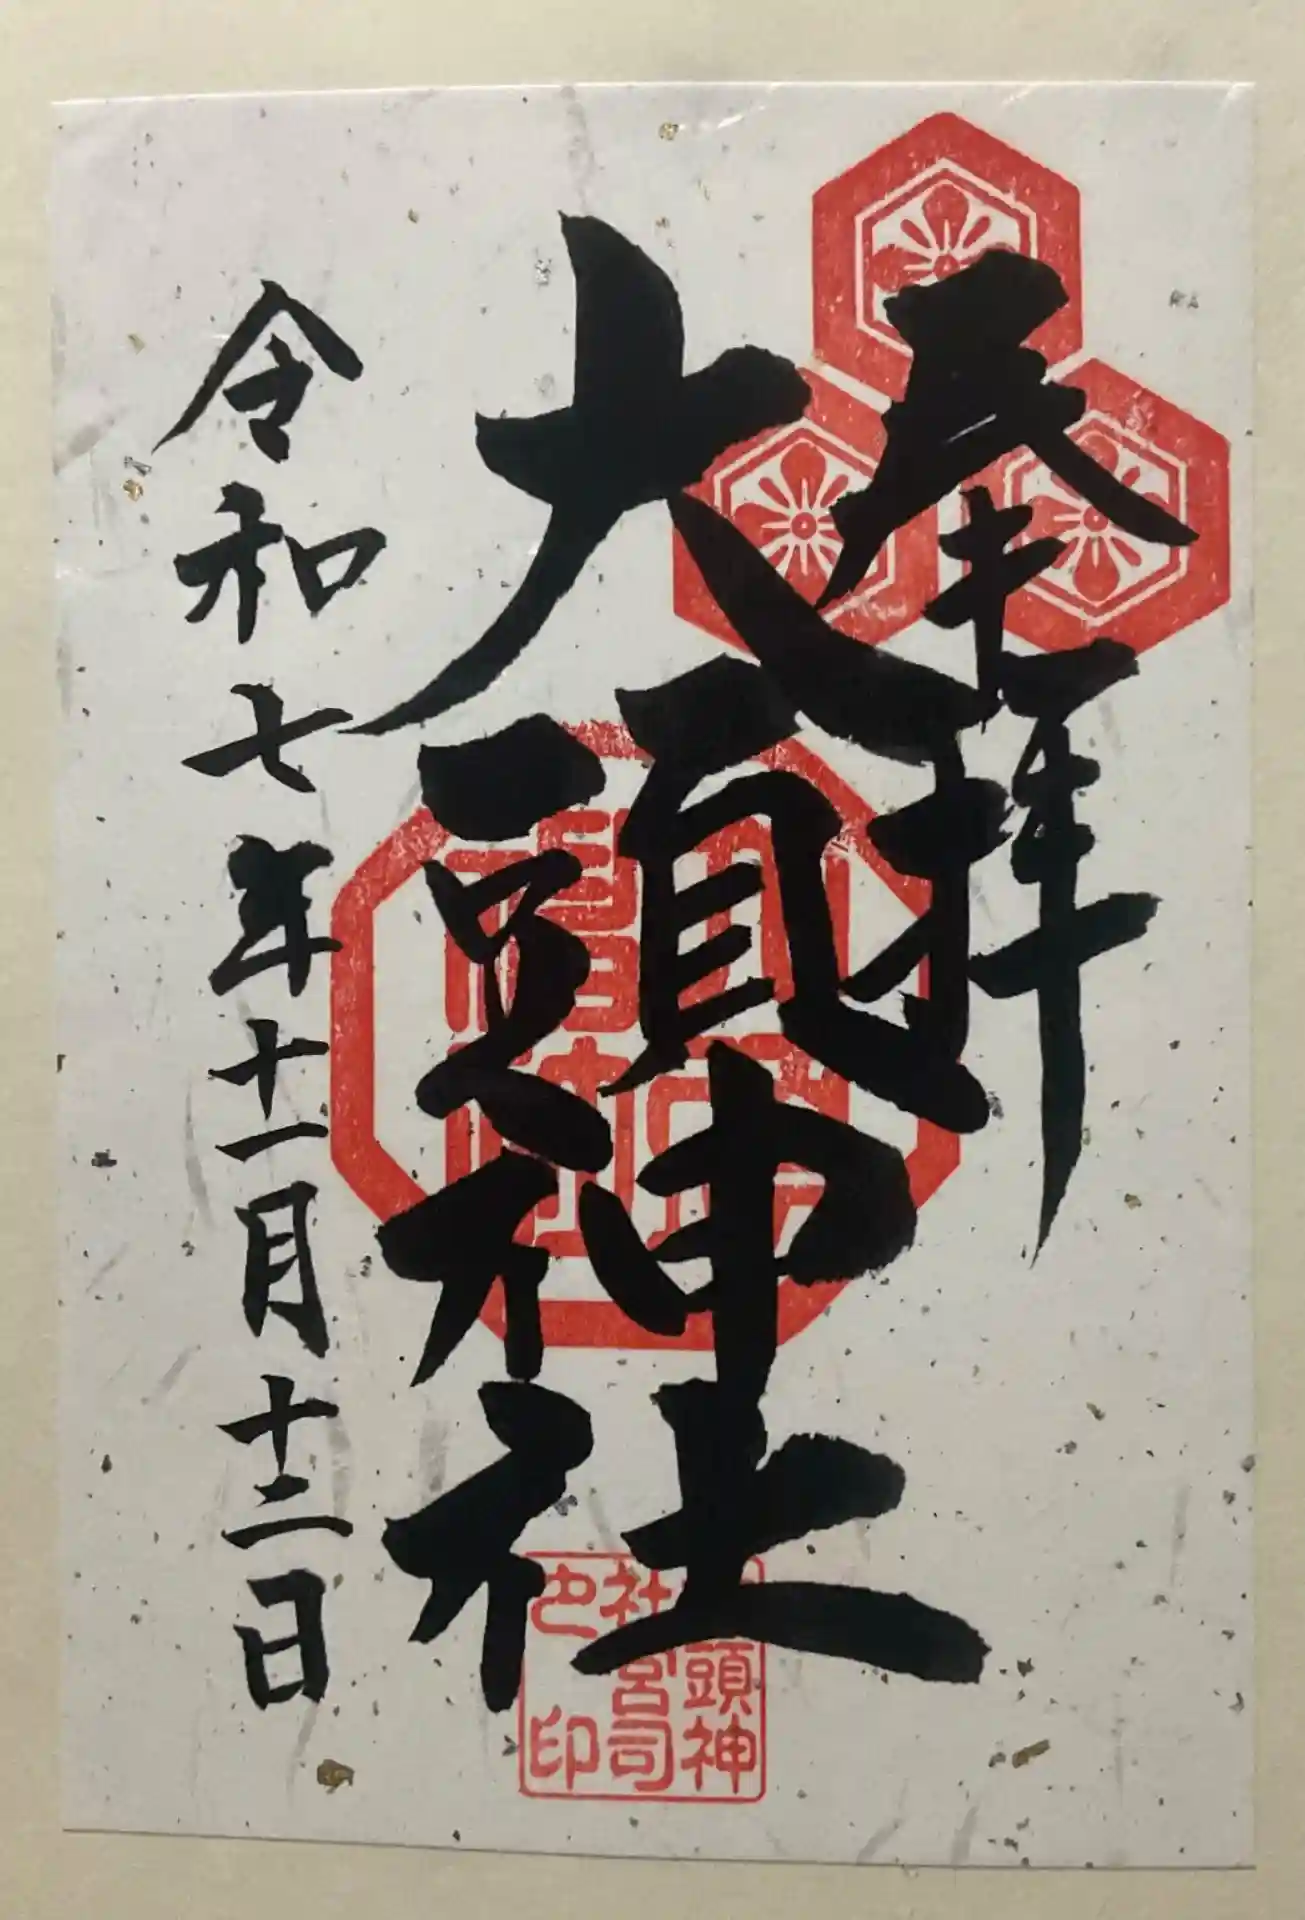 奉拝
大頭神社
令和七年十一月十二日
頭神
社宮司
之印